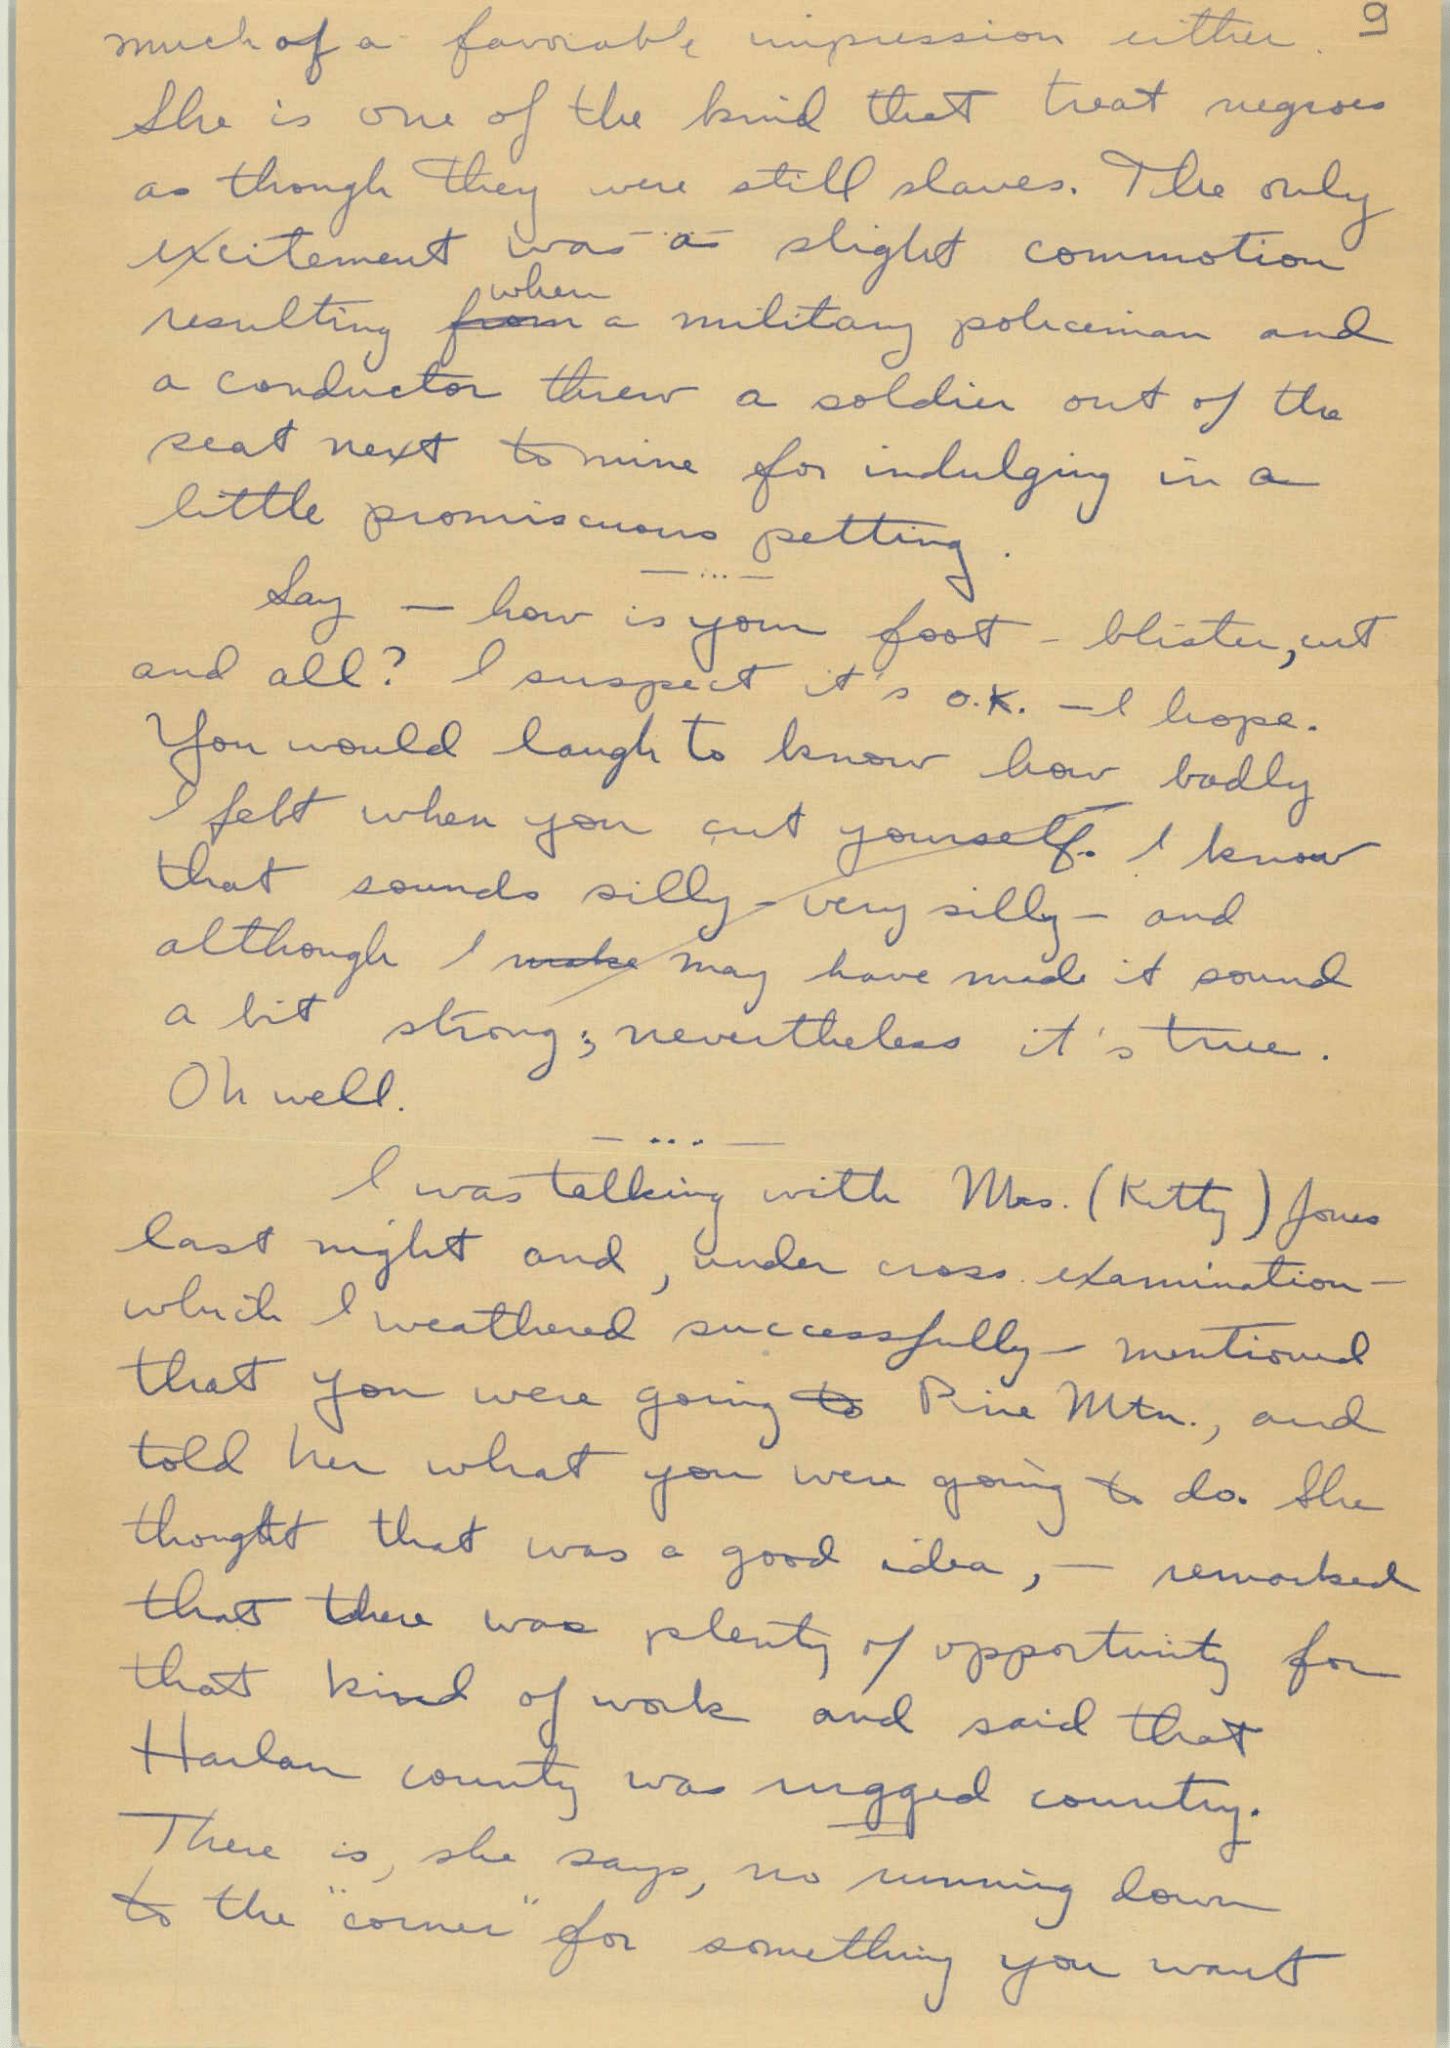 9
much of a favorable impression either.
She is one of the kind that treat negroes
as though they were still slaves. The only
excitement was a slight commotion
resulting from when a military policeman and
a conductor threw a soldier out of the
seat next to mine for indulging in a
little promiscuous petting.
— ... —
Say — how is your foot - blister, cut
and all? I suspect it's O.K. — I hope.
You would laugh to know how badly
I felt when you cut yourself. I know
that sounds silly - very silly - and
although I make may have made it sound
a bit strong; nevertheless it's true.
Oh well.
— ... —
I was talking with Mrs. (Kitty) Jones
last night and, under cross examination -
which I weathered successfully - mentioned
that you were going to Pine Mtn., and
told her what you were going to do. She
thought that was a good idea, — remarked
that there was plenty of opportunity for
that kind of work and said that
Harlan county was rugged country.
There is, she says, no running down
to the "corner" for something you want